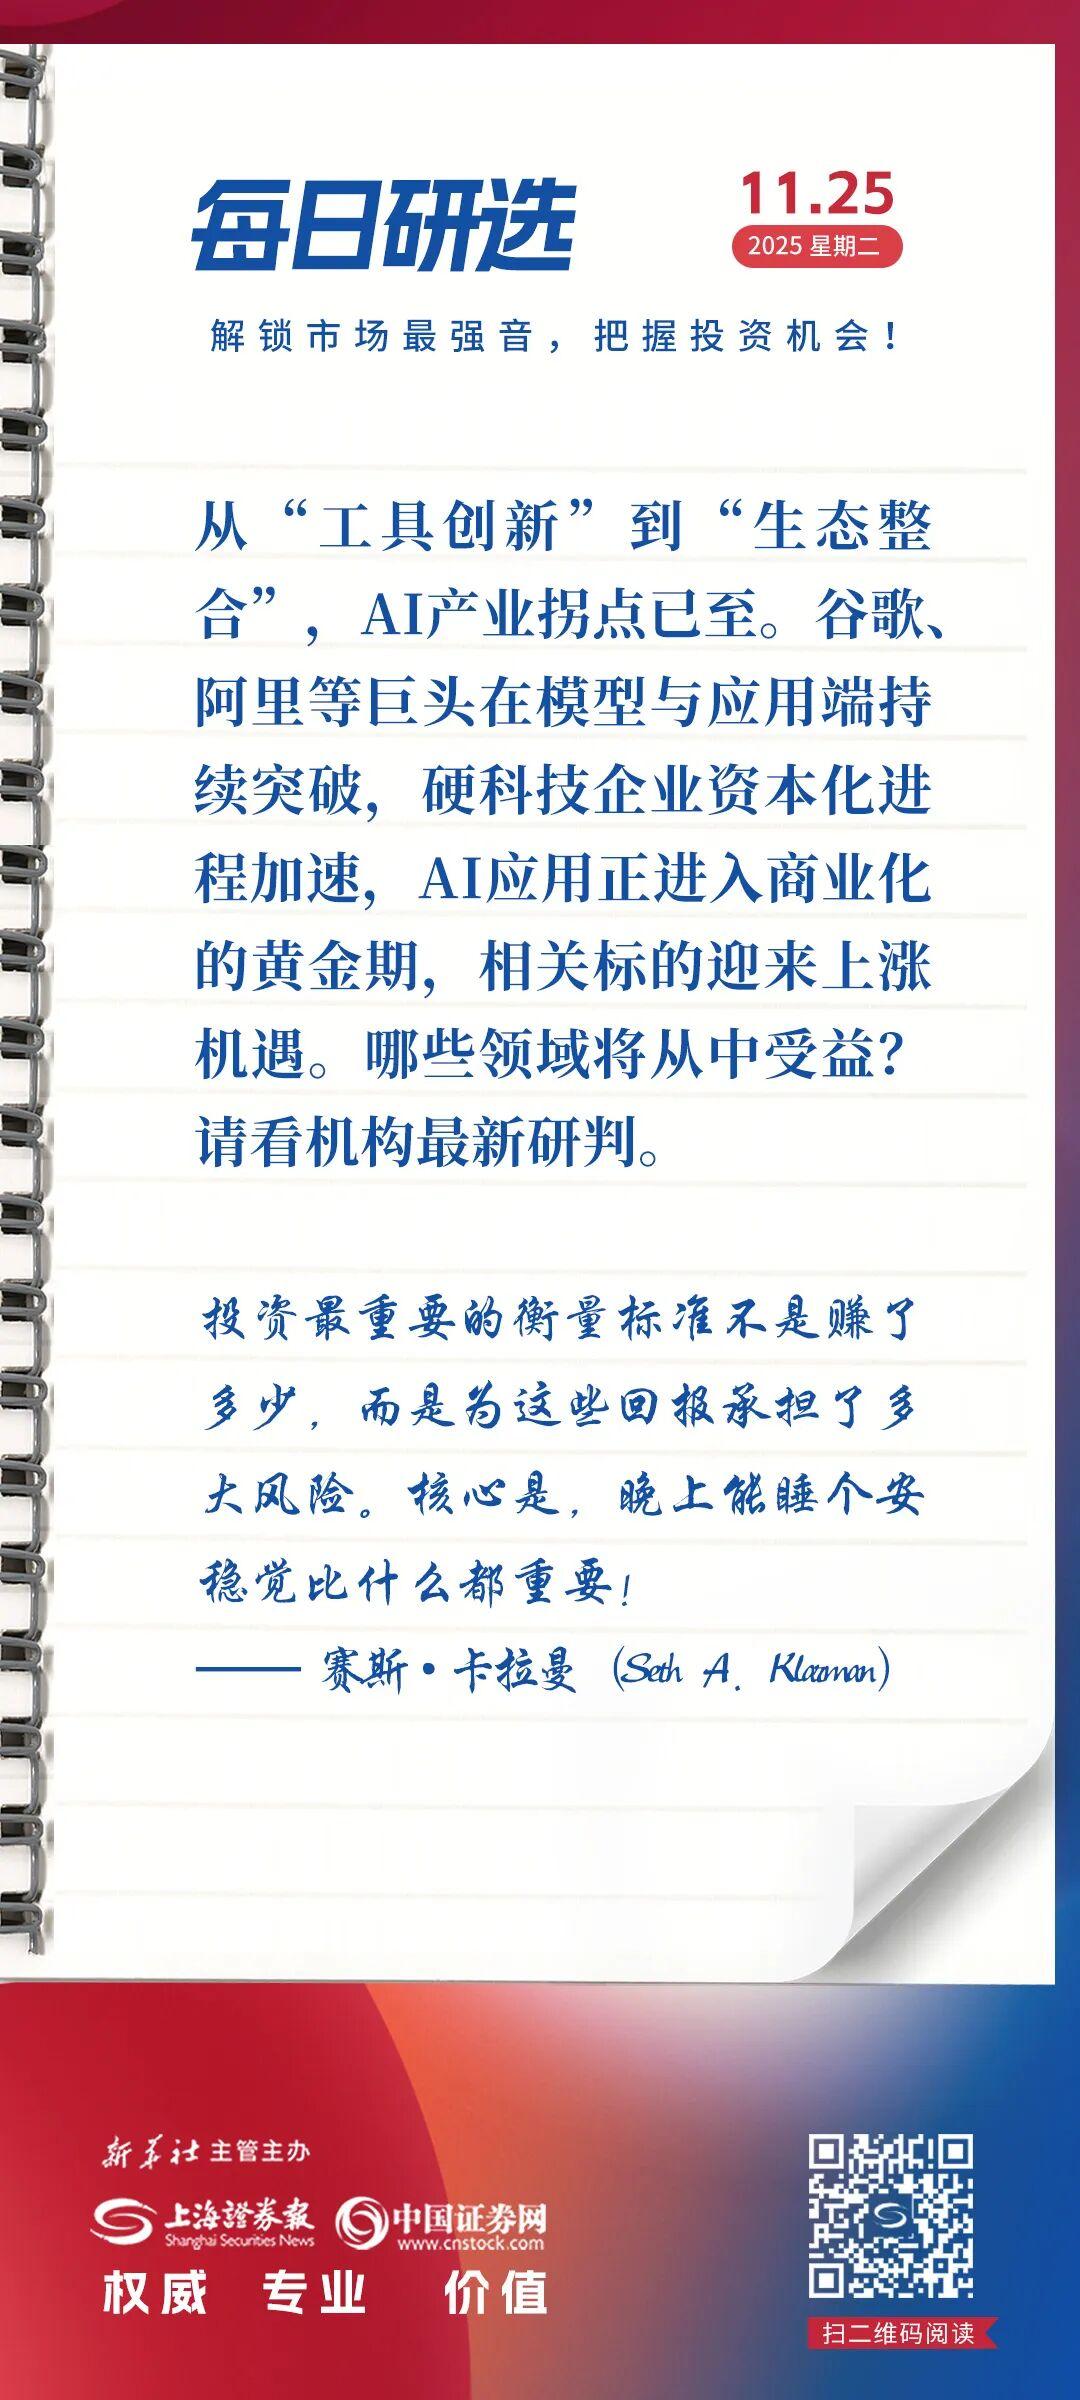 每日研选
11.25
2025 星期二
解锁市场最强音，把握投资机会！
从“工具创新”到“生态整
合”，AI产业拐点已至。谷歌、
阿里等巨头在模型与应用端持
续突破，硬科技企业资本化进
程加速，AI应用正进入商业化
的黄金期，相关标的迎来上涨
机遇。哪些领域将从中受益？
请看机构最新研判。
投资最重要的衡量标准不是赚了
多少，而是为这些回报承担了多
大风险。核心是，晚上能睡个安
稳觉比什么都重要！
—— 赛斯·卡拉曼（Seth A. Klarman）
新华社 主管主办
上海證券報 中国证券网
Shanghai Securities News www.cnstock.com
权威 专业 价值
扫二维码阅读